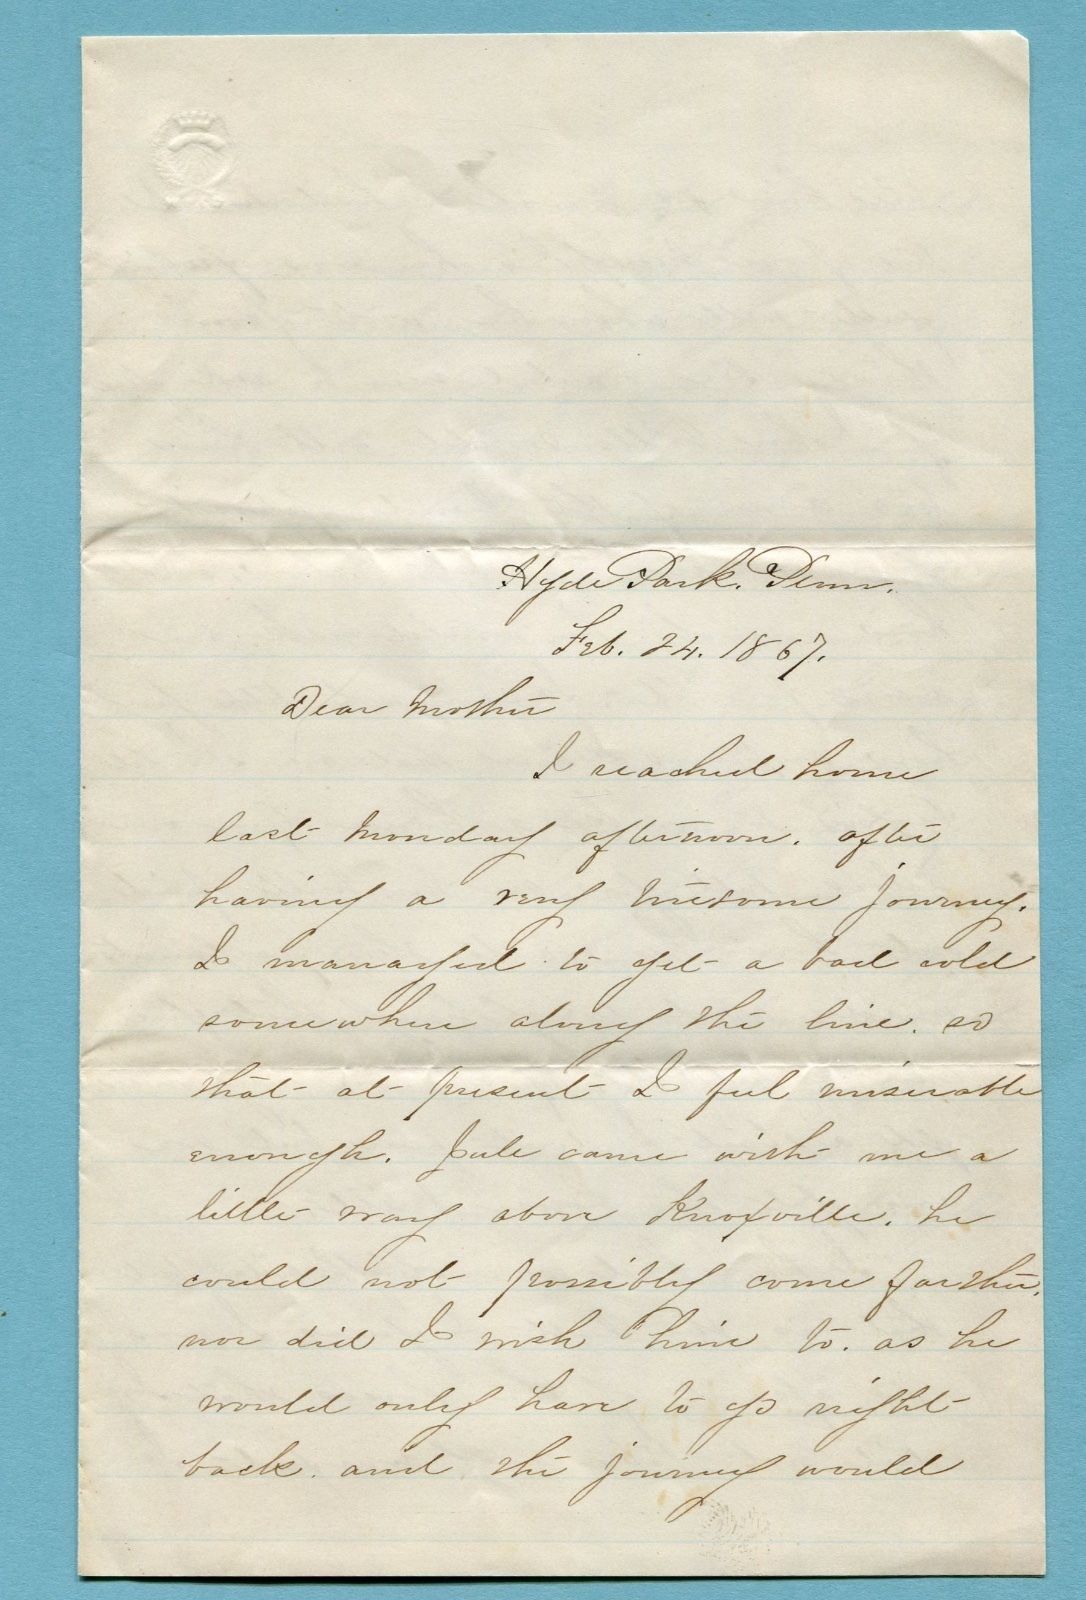 Hyde Park. Penn.
Feb. 24. 1867.
Dear Mother
I reached home
last Monday afternoon. after
having a very tiresome journey.
I managed to get a bad cold
somewhere along the line. so
that at present I feel miserable
enough. Jule came with me a
little way above Knoxville. he
could not possibly come farther.
nor did I wish him to. as he
would only have to go right
back. and the journey would